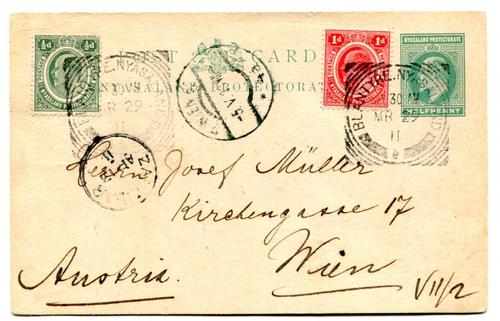 ½d ½d
1d 1d
NYASALAND PROTECTORATE
POST CARD
NYASALAND PROTECTORATE
HALFPENNY
BLANTYRE.NYASALAND
MR 29
11
WIEN
BLANTYRE.NYASALAND
30 AM
MR 29
11
ZANZIBAR
AP
11
Herrn Josef Müller
Kirchengasse 17
Wien
VII/2
Austria.